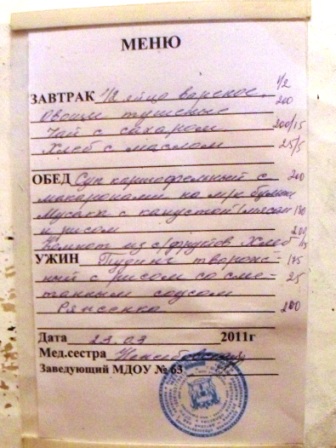 МЕНЮ
ЗАВТРАК 1/2 яйца вареное, 1/2
Овощи тушеные 200
Чай с сахаром 200/15
Хлеб с маслом 25/5
ОБЕД Суп картофельный с 200
макаронами на м/к бульон
Мусака с капустой, мясом 130
и рисом
Компот из с/фруктов Хлеб
УЖИН Пудинг творож- 175
ный с рисом со сме- 25
танным соусом
Ряженка 200
Дата 23.09 2011г
Мед.сестра
Заведующий МДОУ № 63